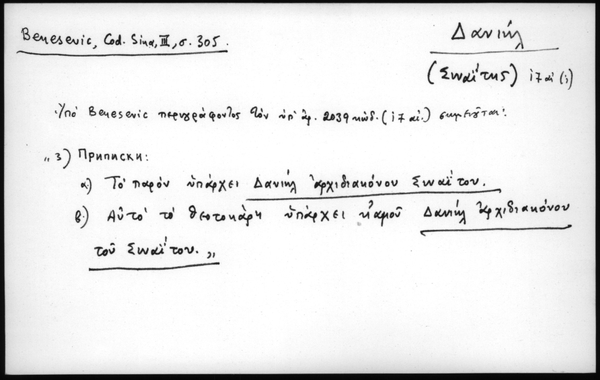 Benesevic, Cod. Sina, III, σ. 305.
Δανιήλ
(Σιναΐτης) ι7 αἰ (;)
Ὑπό Benesevic περιγράφοντος τόν ὑπ' ἀρ. 2039 κώδ. (ι7 αἰ.) σημειοῦται:
„3) Приписки:
α) Τό παρόν ὑπάρχει Δανιήλ ἀρχιδιακόνου Σιναΐτου.
β) Αὗτο τό θεοτοκάρη ὑπάρχει κἀμοῦ Δανιήλ ἀρχιδιακόνου
τοῦ Σιναΐτου.„